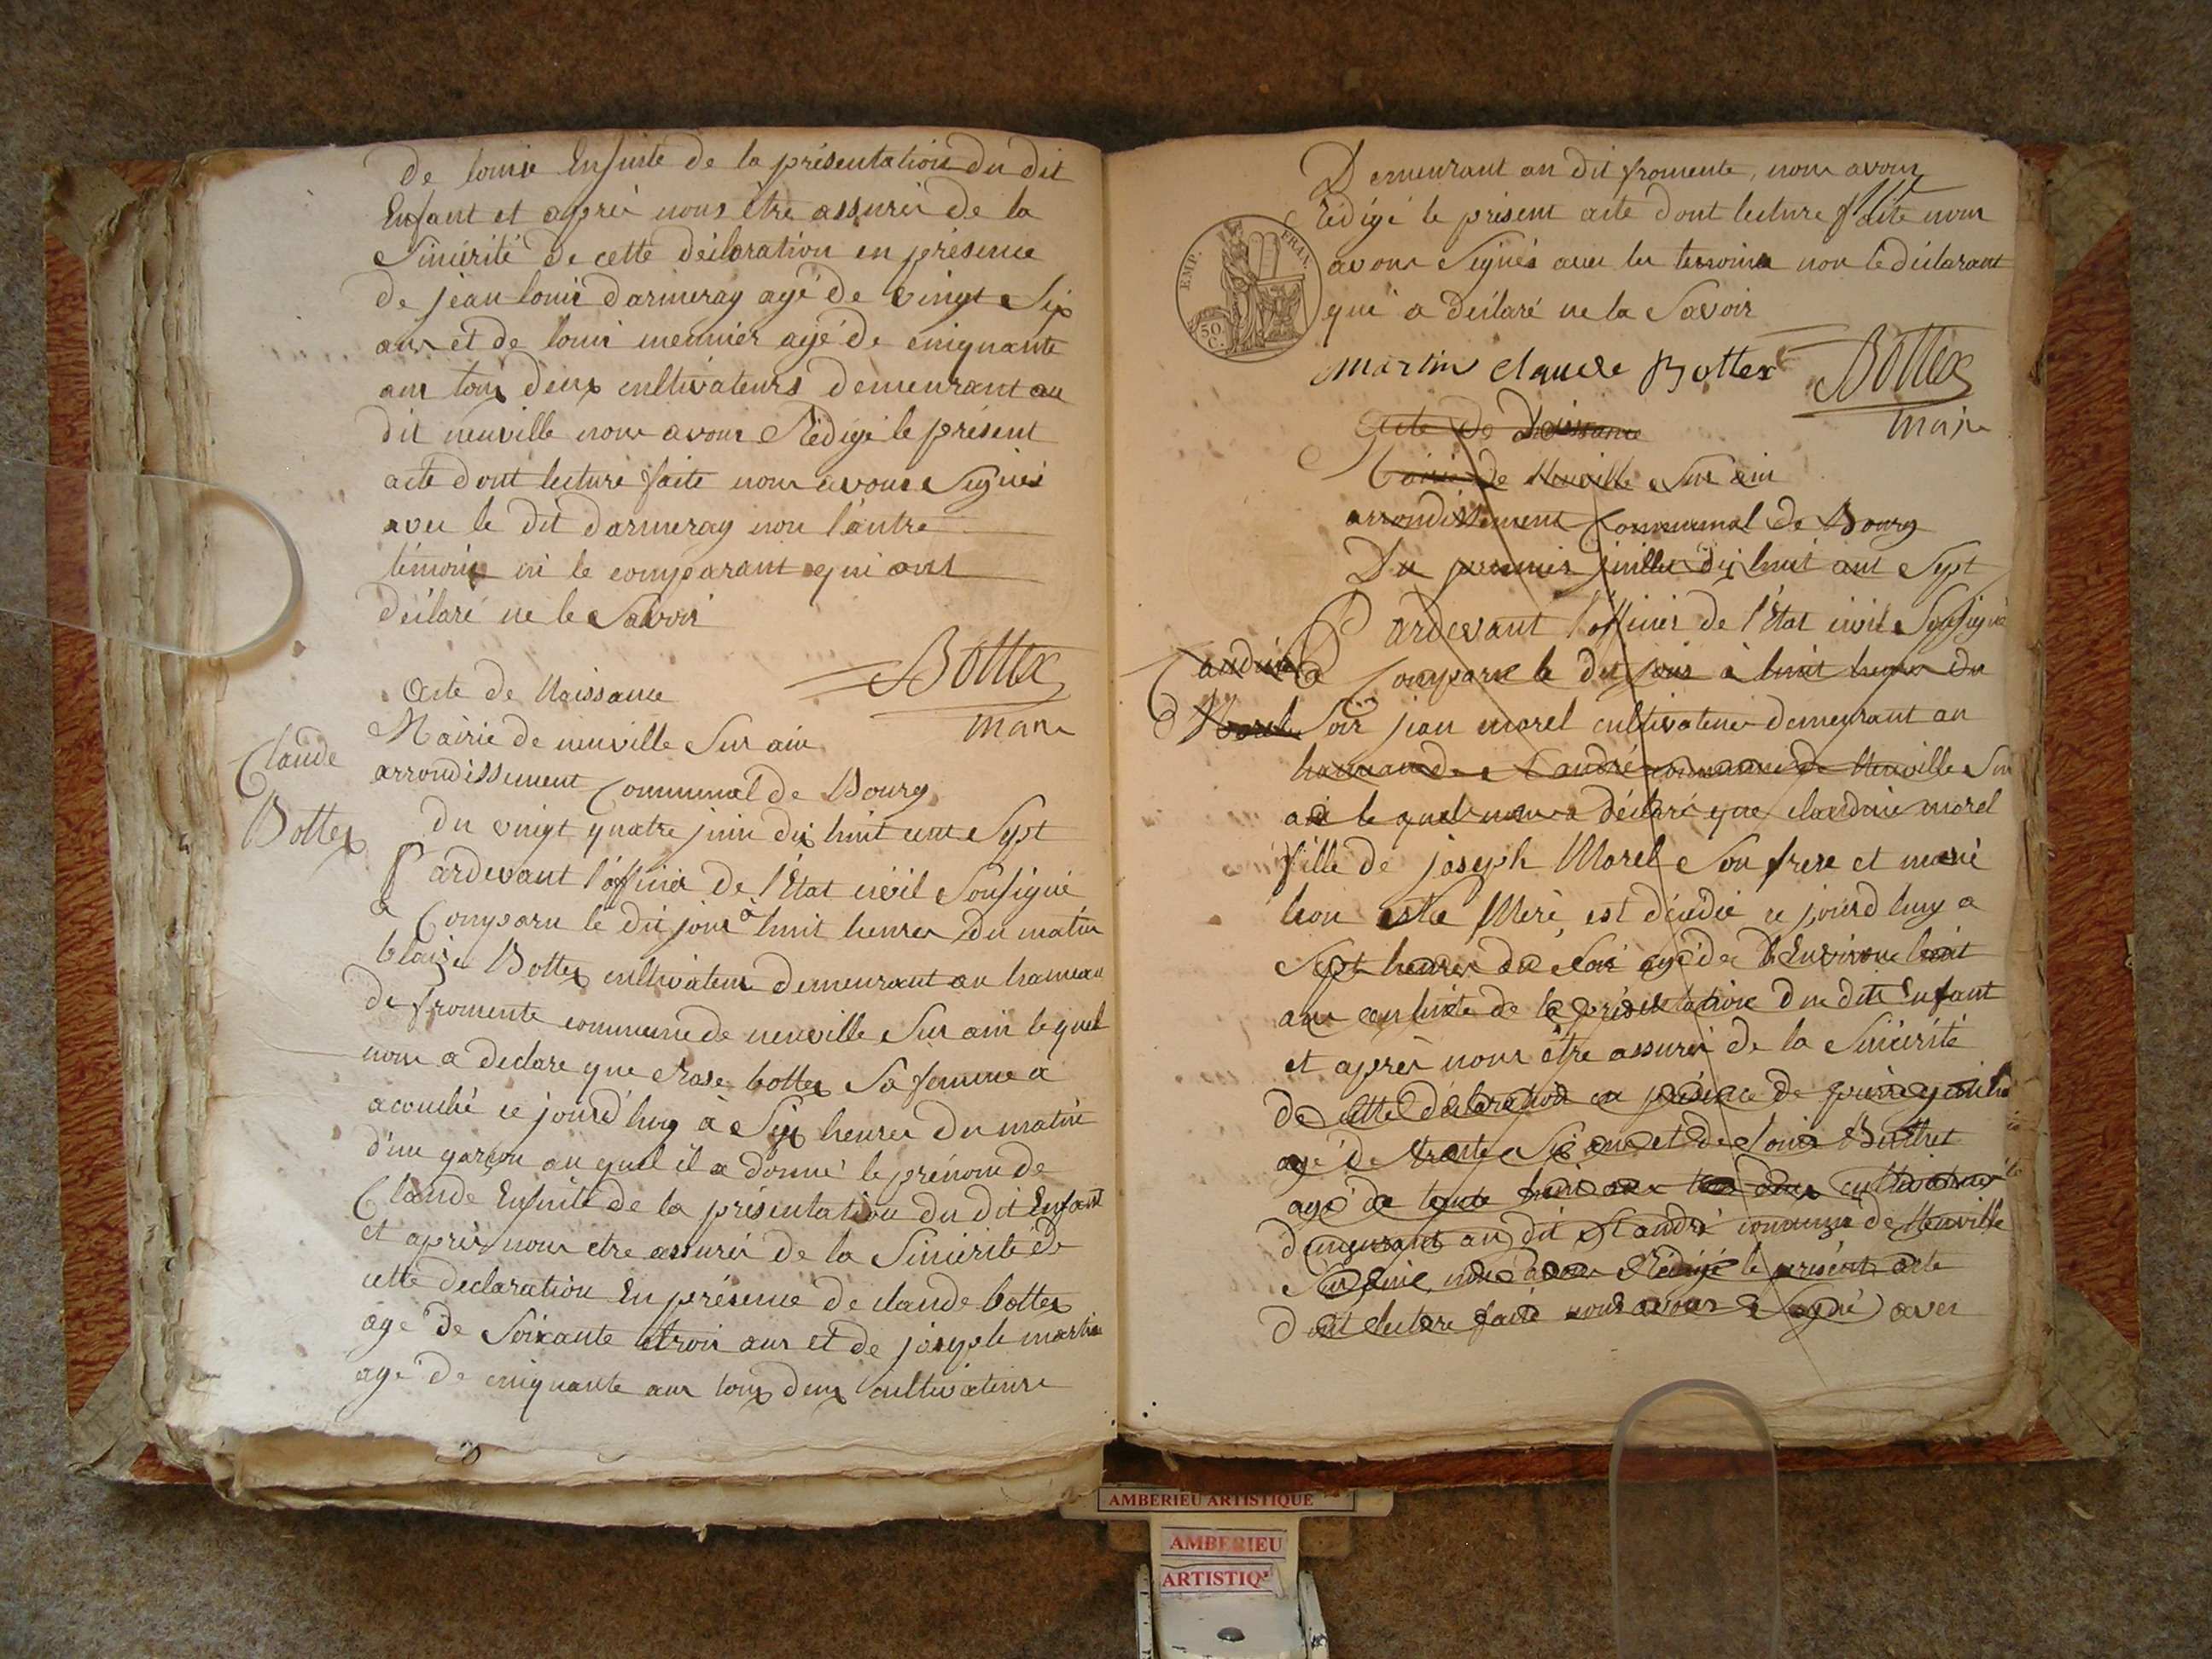 De louise Ensuite de la présentation du dit
Enfant et après nous être assurés de la
Sincérité de cette déclaration en présence
de jean louis darmeray agé de vingt Six
ans et de louis meunier agé de cinquante
ans tous deux cultivateurs demeurant au
dit neuville nous avons Rédigé le présent
acte dont lecture faite nous avons Signés
avec le dit darmeray non l'autre
témoin ni le comparant qui ont
déclaré ne le Savoir
Bottex
maire
Acte de Naissance
Mairie de neuville Sur ain
Claude
Bottex
arrondissement Communal de Bourg
du vingt quatre juin dix huit cent Sept
Pardevant l'officier de l'Etat civil Sousigné
a Comparu le dit jour à huit heures du matin
blaize Bottex cultivateur demeurant au hameau
de fromente commune de neuville Sur ain lequel
nous a declare que Rose bottex Sa femme a
acouché ce jourd'huy à Six heures du matin
d'un garçon au quel il a donné le prénom de
Claude Ensuite de la présentation du dit Enfant
et après nous etre assurés de la Sincérité de
cette declaration En présence de claude bottex
agé de Soixante etrois ans et de joseph martin
agé de cinquante ans tous deux cultivateurs
Demeurant au dit fromente, nous avons
Rédigé le présent acte dont lecture faite nous
avons Signés avec les temoins non le déclarant
qui a déclaré ne la Savoir
EMP. FRAN.
50 C.
martin claude Bottex
Bottex
maire
Acte de Naissance
Mairie de Neuville Sur ain
arrondissement Communal de Bourg
Du premier juillet dix huit cent Sept
Pardevant l'officier de l'Etat civil Sousigné
Claudine
Morel
a Comparu le dit jour à huit heures du
Soir jean morel cultivateur demeurant au
hameau de St andré commune de Neuville Sur
ain le quel nous a déclaré que claudine morel
fille de joseph Morel Son frere et marie
Mere, est décédée ce jourd huy a
Sept heures du Soir agée de d'Environ huit
ans ensuite de la présentation du dit Enfant
et après nous être assurés de la Sincérité
de cette déclaration en présence de pierre
agé de trente Six ans et de louis
agé de trente huit ans tous deux cultivateurs
demeurant au dit St andré commune de Neuville
Sur ain, nous avons Rédigé le présent acte
dont lecture faite nous avons Signé avec
AMBERIEU ARTISTIQUE
AMBERIEU
ARTISTIQ